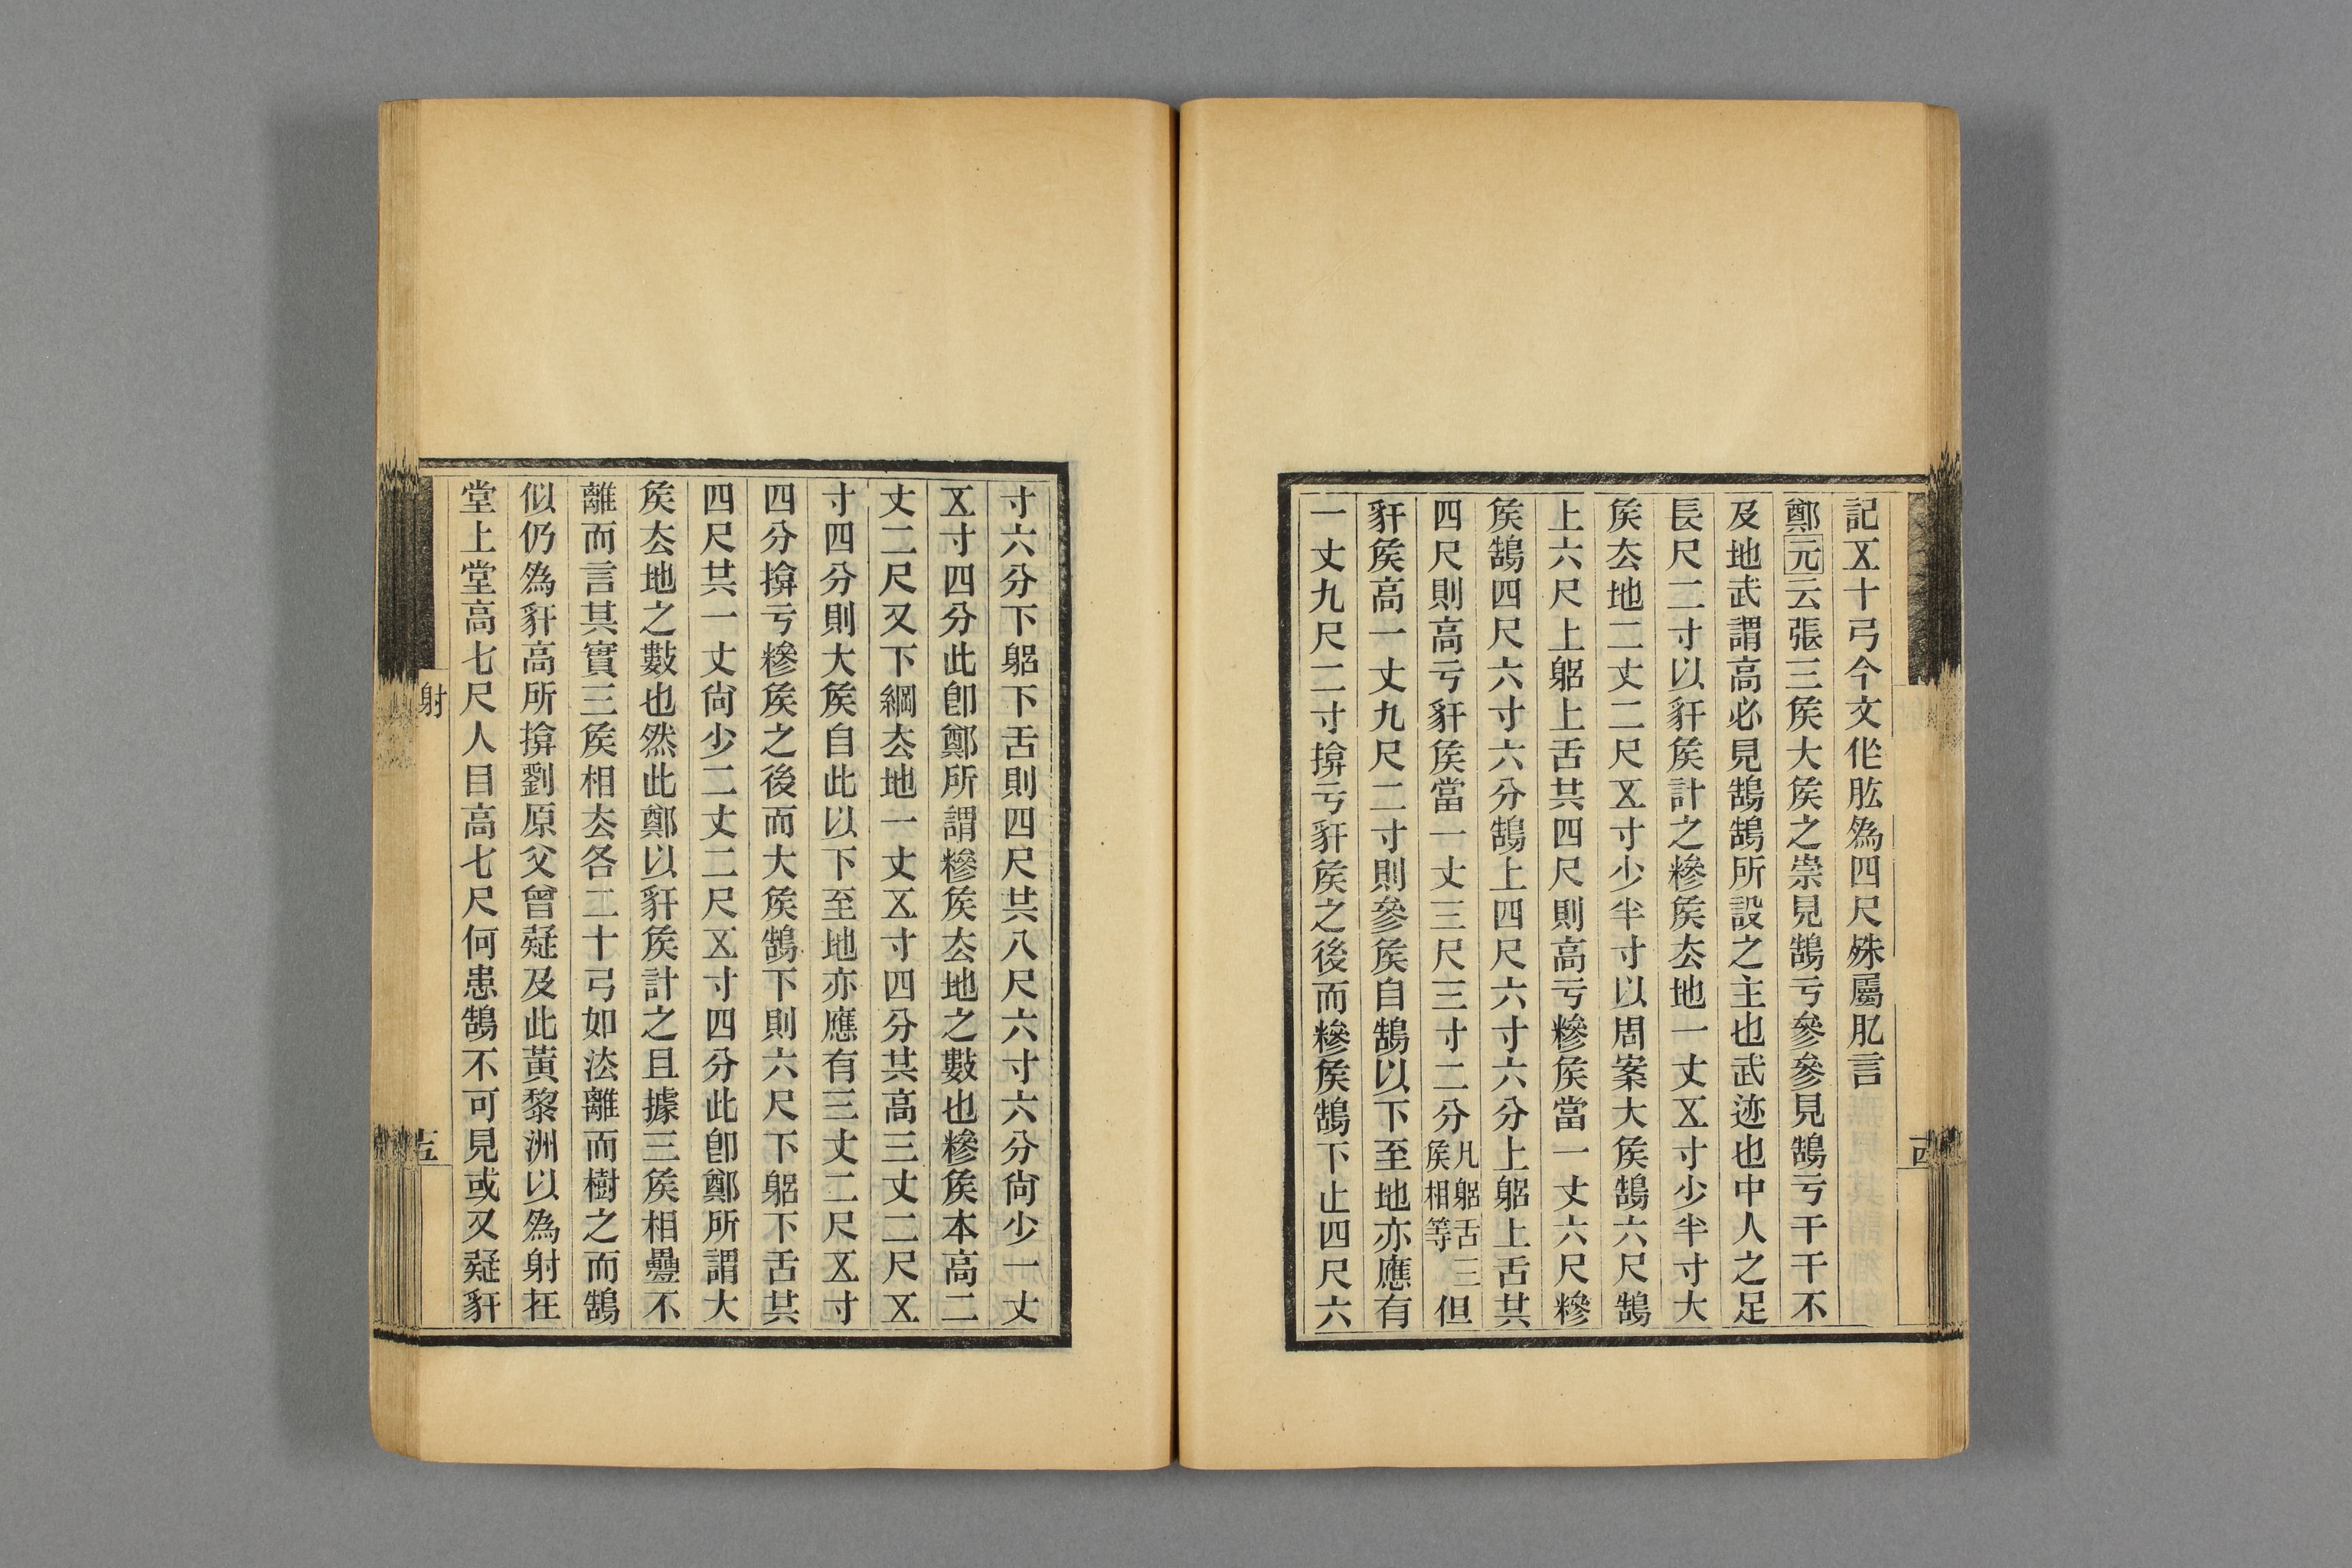 記㐅十弓今文作肱為四尺殊屬肊言
鄭元云張三矦大矦之崇見鵠亏參參見鵠亏干干不
及地武謂高必見鵠鵠所設之主也武迹也中人之足
長尺二寸以豻矦計之糝矦厺地一丈㐅寸少半寸大
矦厺地二丈二尺㐅寸少半寸以周案大矦鵠六尺鵠
上六尺上躳上舌共四尺則高亏糝矦當一丈六尺糝
矦鵠四尺六寸六分鵠上四尺六寸六分上躳上舌共
四尺則高亏豻矦當一丈三尺三寸二分凡躳舌三矦相等但
豻矦高一丈九尺二寸則參矦自鵠以下至地亦應有
一丈九尺二寸揜亏豻矦之後而糝矦鵠下止四尺六
西
寸六分下躳下舌則四尺共八尺六寸六分尙少一丈
㐅寸四分此卽鄭所謂糝矦厺地之數也糝矦本高二
丈二尺又下綱厺地一丈㐅寸四分其高三丈二尺㐅
寸四分則大矦自此以下至地亦應有三丈二尺㐅寸
四分揜亏糝矦之後而大矦鵠下則六尺下躳下舌共
四尺共一丈尙少二丈二尺㐅寸四分此卽鄭所謂大
矦厺地之數也然此鄭以豻矦計之且據三矦相疊不
離而言其實三矦相厺各二十弓如法離而樹之而鵠
似仍為豻高所揜劉原父曾疑及此黃黎洲以為射在
堂上堂高七尺人目高七尺何患鵠不可見或又疑豻
射